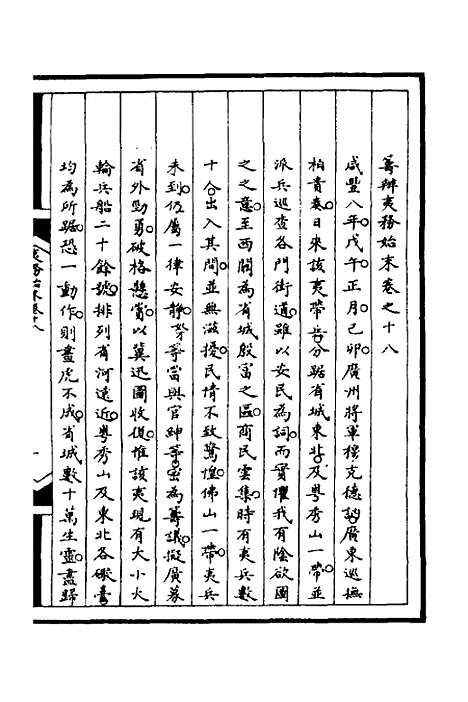 籌辦夷務始末卷之十八
咸豐八年戊午正月己卯○廣州將軍穆克德訥○廣東巡撫
柏貴奏○日來該夷帶兵○分踞省城東北○及粵秀山一帶○並
派兵巡查各門街道○雖以安民為詞○而實懼我有陰欲圖
之之意○至西關為省城殷富之區○商民雲集○時有夷兵數
十○出入其間○並無滋擾○民情不致驚惶○佛山一帶○夷兵
未到○仍屬一律安靜○奴等當與官紳等○密為籌議○擬廣募
省外勁勇○破格懸賞○以冀迅圖收復○惟該夷現有大小火
輪兵船二十餘號○排列省河遠近○粵秀山及東北各礮臺○
均為所踞○恐一動作○則畫虎不成○省城數十萬生靈○盡歸
夷務始末卷十八
一